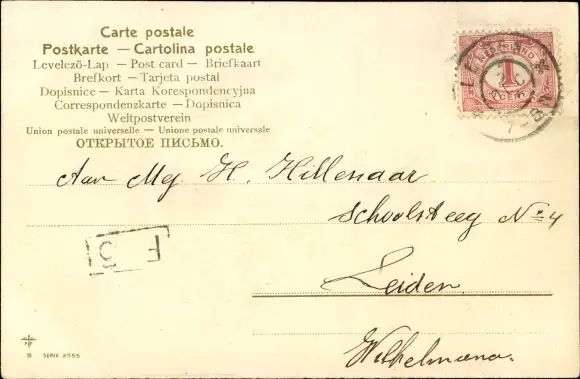 Carte postale
Postkarte — Cartolina postale
Levelező-Lap — Post card — Briefkaart
Brefkort — Tarjeta postal
Dopisnice — Karta Korespondencyjna
Correspondenzkarte — Dopisnica
Weltpostverein
Union postale universelle — Unione postale universale
ОТКРЫТОЕ ПИСЬМО.
NEDERLAND
1
CENT
Aan Mej H. Hillenaar
Schoolsteeg No 4
Leiden
Wilhelmina.
F 5
B SERIE